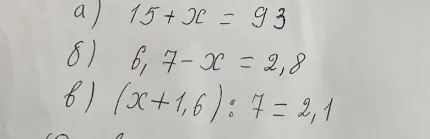 а) 15 + x = 93
б) 6,7 - x = 2,8
в) (x + 1,6) : 7 = 2,1